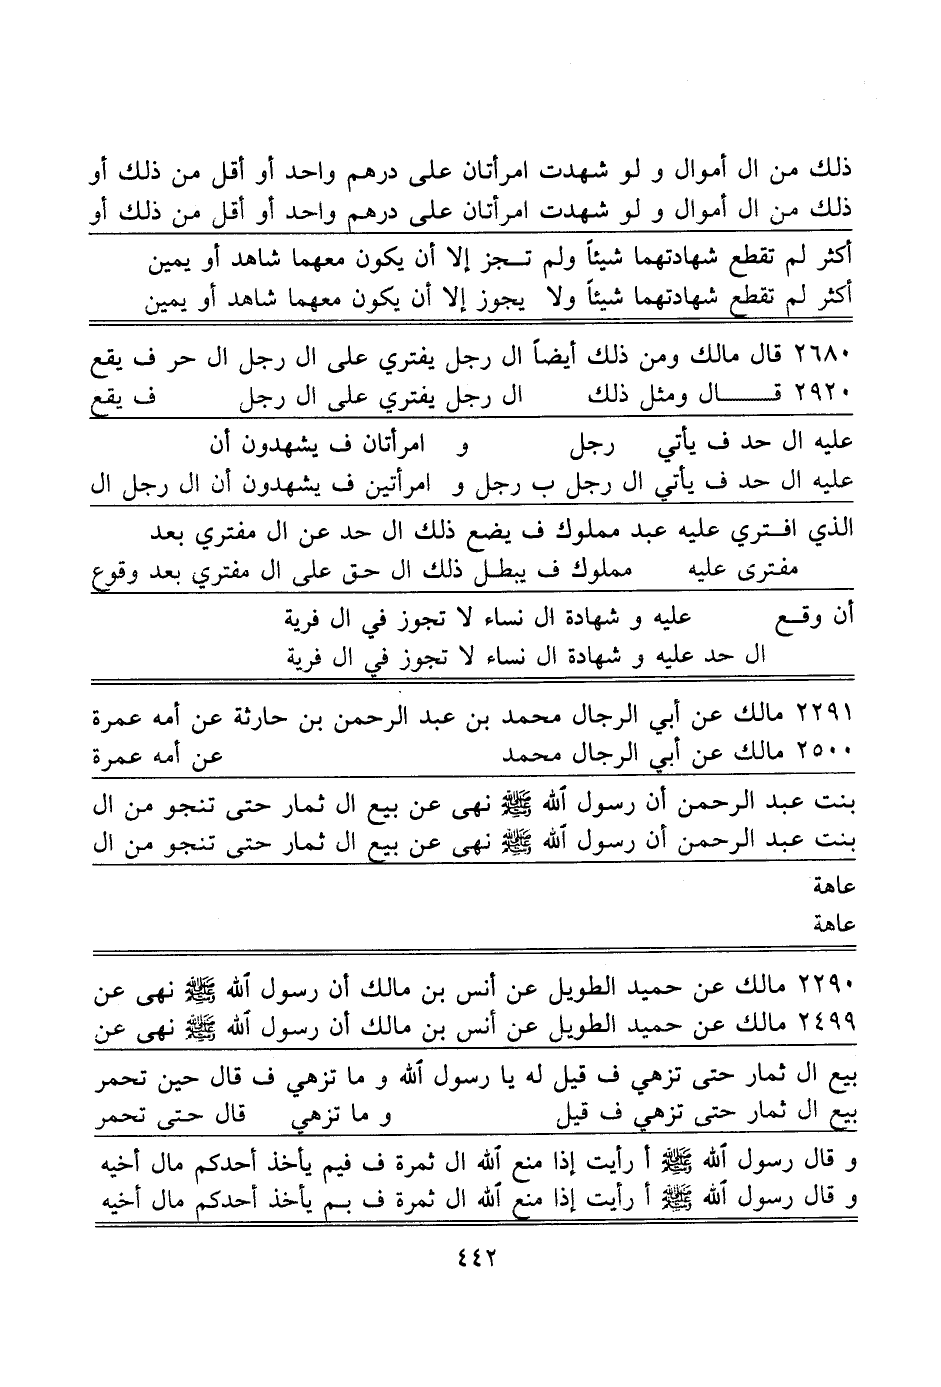 ذلك من ال أموال و لو شهدت امرأتان على درهم واحد أو أقل من ذلك أو
ذلك من ال أموال و لو شهدت امرأتان على درهم واحد أو أقل من ذلك أو
أكثر لم تقطع شهادتهما شيئاً ولم تـجز إلا أن يكون معهما شاهد أو يمين
أكثر لم تقطع شهادتهما شيئاً ولا يجوز إلا أن يكون معهما شاهد أو يمين
٢٦٨٠ قال مالك ومن ذلك أيضاً ال رجل يفتري على ال رجل ال حر ف يقع
٢٩٢٠ قـــــال ومثل ذلك ال رجل يفتري على ال رجل ف يقع
عليه ال حد ف يأتي رجل و امرأتان ف يشهدون أن
عليه ال حد ف يأتي ال رجل ب رجل و امرأتين ف يشهدون أن ال رجل ال
الذي افـتري عليه عبد مملوك ف يضع ذلك ال حد عن ال مفتري بعد
مفترى عليه مملوك ف يبطـل ذلك ال حـق على ال مفتري بعد وقوع
أن وقـع عليه و شهادة ال نساء لا تجوز في ال فرية
ال حد عليه و شهادة ال نساء لا تجوز في ال فرية
٢٢٩١ مالك عن أبي الرجال محمد بن عبد الرحمن بن حارثة عن أمه عمرة
٢٥٠٠ مالك عن أبي الرجال محمد عن أمه عمرة
بنت عبد الرحمن أن رسول ٱلله ﷺ نهى عن بيع ال ثمار حتى تنجو من ال
بنت عبد الرحمن أن رسول ٱلله ﷺ نهى عن بيع ال ثمار حتى تنجو من ال
عاهة
عاهة
٢٢٩٠ مالك عن حميد الطويل عن أنس بن مالك أن رسول ٱلله ﷺ نهى عن
٢٤٩٩ مالك عن حميد الطويل عن أنس بن مالك أن رسول ٱلله ﷺ نهى عن
بيع ال ثمار حتى تزهي ف قيل له يا رسول ٱلله و ما تزهي ف قال حين تحمر
بيع ال ثمار حتى تزهي ف قيل و ما تزهي قال حـتى تحمر
و قال رسول ٱلله ﷺ أ رأيت إذا منع ٱلله ال ثمرة ف فيم يأخذ أحدكم مال أخيه
و قال رسول ٱلله ﷺ أ رأيت إذا منع ٱلله ال ثمرة ف بـم يأخذ أحدكم مال أخيه
٤٤٢